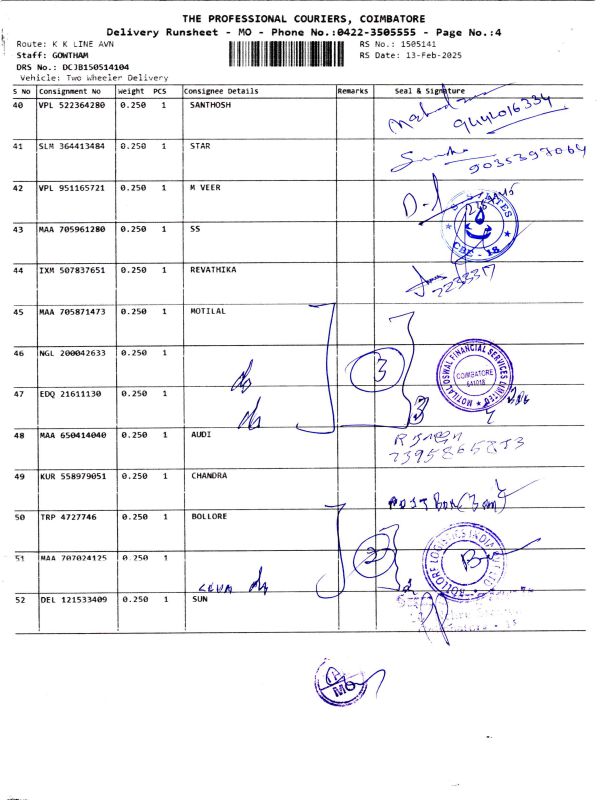 THE PROFESSIONAL COURIERS, COIMBATORE
Delivery Runsheet - MO - Phone No.:0422-3505555 - Page No.:4
Route: K K LINE AVN
RS No.: 1505141
Staff: GOWTHAM
RS Date: 13-Feb-2025
DRS No.: DCJB150514104
Vehicle: Two Wheeler Delivery
S No Consignment No Weight PCS Consignee Details Remarks Seal & Signature
40 VPL 522364280 0.250 1 SANTHOSH
9442016334
41 SLM 364413484 0.250 1 STAR
9035397064
42 VPL 951165721 0.250 1 M VEER
43 MAA 705961280 0.250 1 SS
CBE - 18
44 IXM 507837651 0.250 1 REVATHIKA
45 MAA 705871473 0.250 1 MOTILAL
46 NGL 200042633 0.250 1
3
MOTILAL OSWAL FINANCIAL SERVICES LIMITED
COIMBATORE
641018
47 EDQ 21611130 0.250 1
3
48 MAA 650414040 0.250 1 AUDI
7395865853
49 KUR 558979051 0.250 1 CHANDRA
POST BOX
50 TRP 4727746 0.250 1 BOLLORE
51 MAA 707024125 0.250 1
2
BOLLORE LOGISTICS INDIA
52 DEL 121533409 0.250 1 SUN
MO